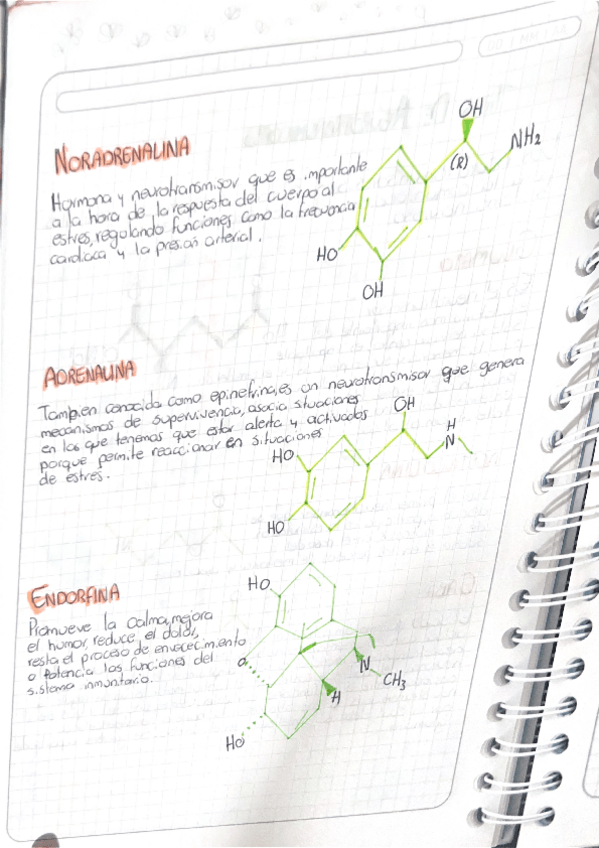 NORADRENALINA
Hormona y neurotransmisor que es importante
a la hora de la respuesta del cuerpo al
estres, regulando funciones como la frecuencia
cardiaca y la presion arterial.
OH
NH2
(R)
HO
OH
ADRENALINA
Tambien conocida como epinefrina, es un neurotransmisor que genera
mecanismos de supervivencia, asocia situaciones
en las que tenemos que estar alerta y activados
porque permite reaccionar en situaciones
de estres.
OH
H
N
HO
HO
ENDORFINA
Promueve la calma, mejora
el humor, reduce el dolor,
resta el proceso de envejecimiento
o potencia las funciones del
sistema inmunitario.
HO
O
N
CH3
H
HO